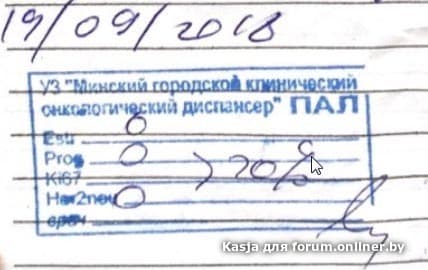 19/09/2018
УЗ "Минский городской клинический
онкологический диспансер" ПАЛ
Estr 0
Prog 0
Ki67 >20%
Her2neu 0
врач
Kasja для forum.onliner.by